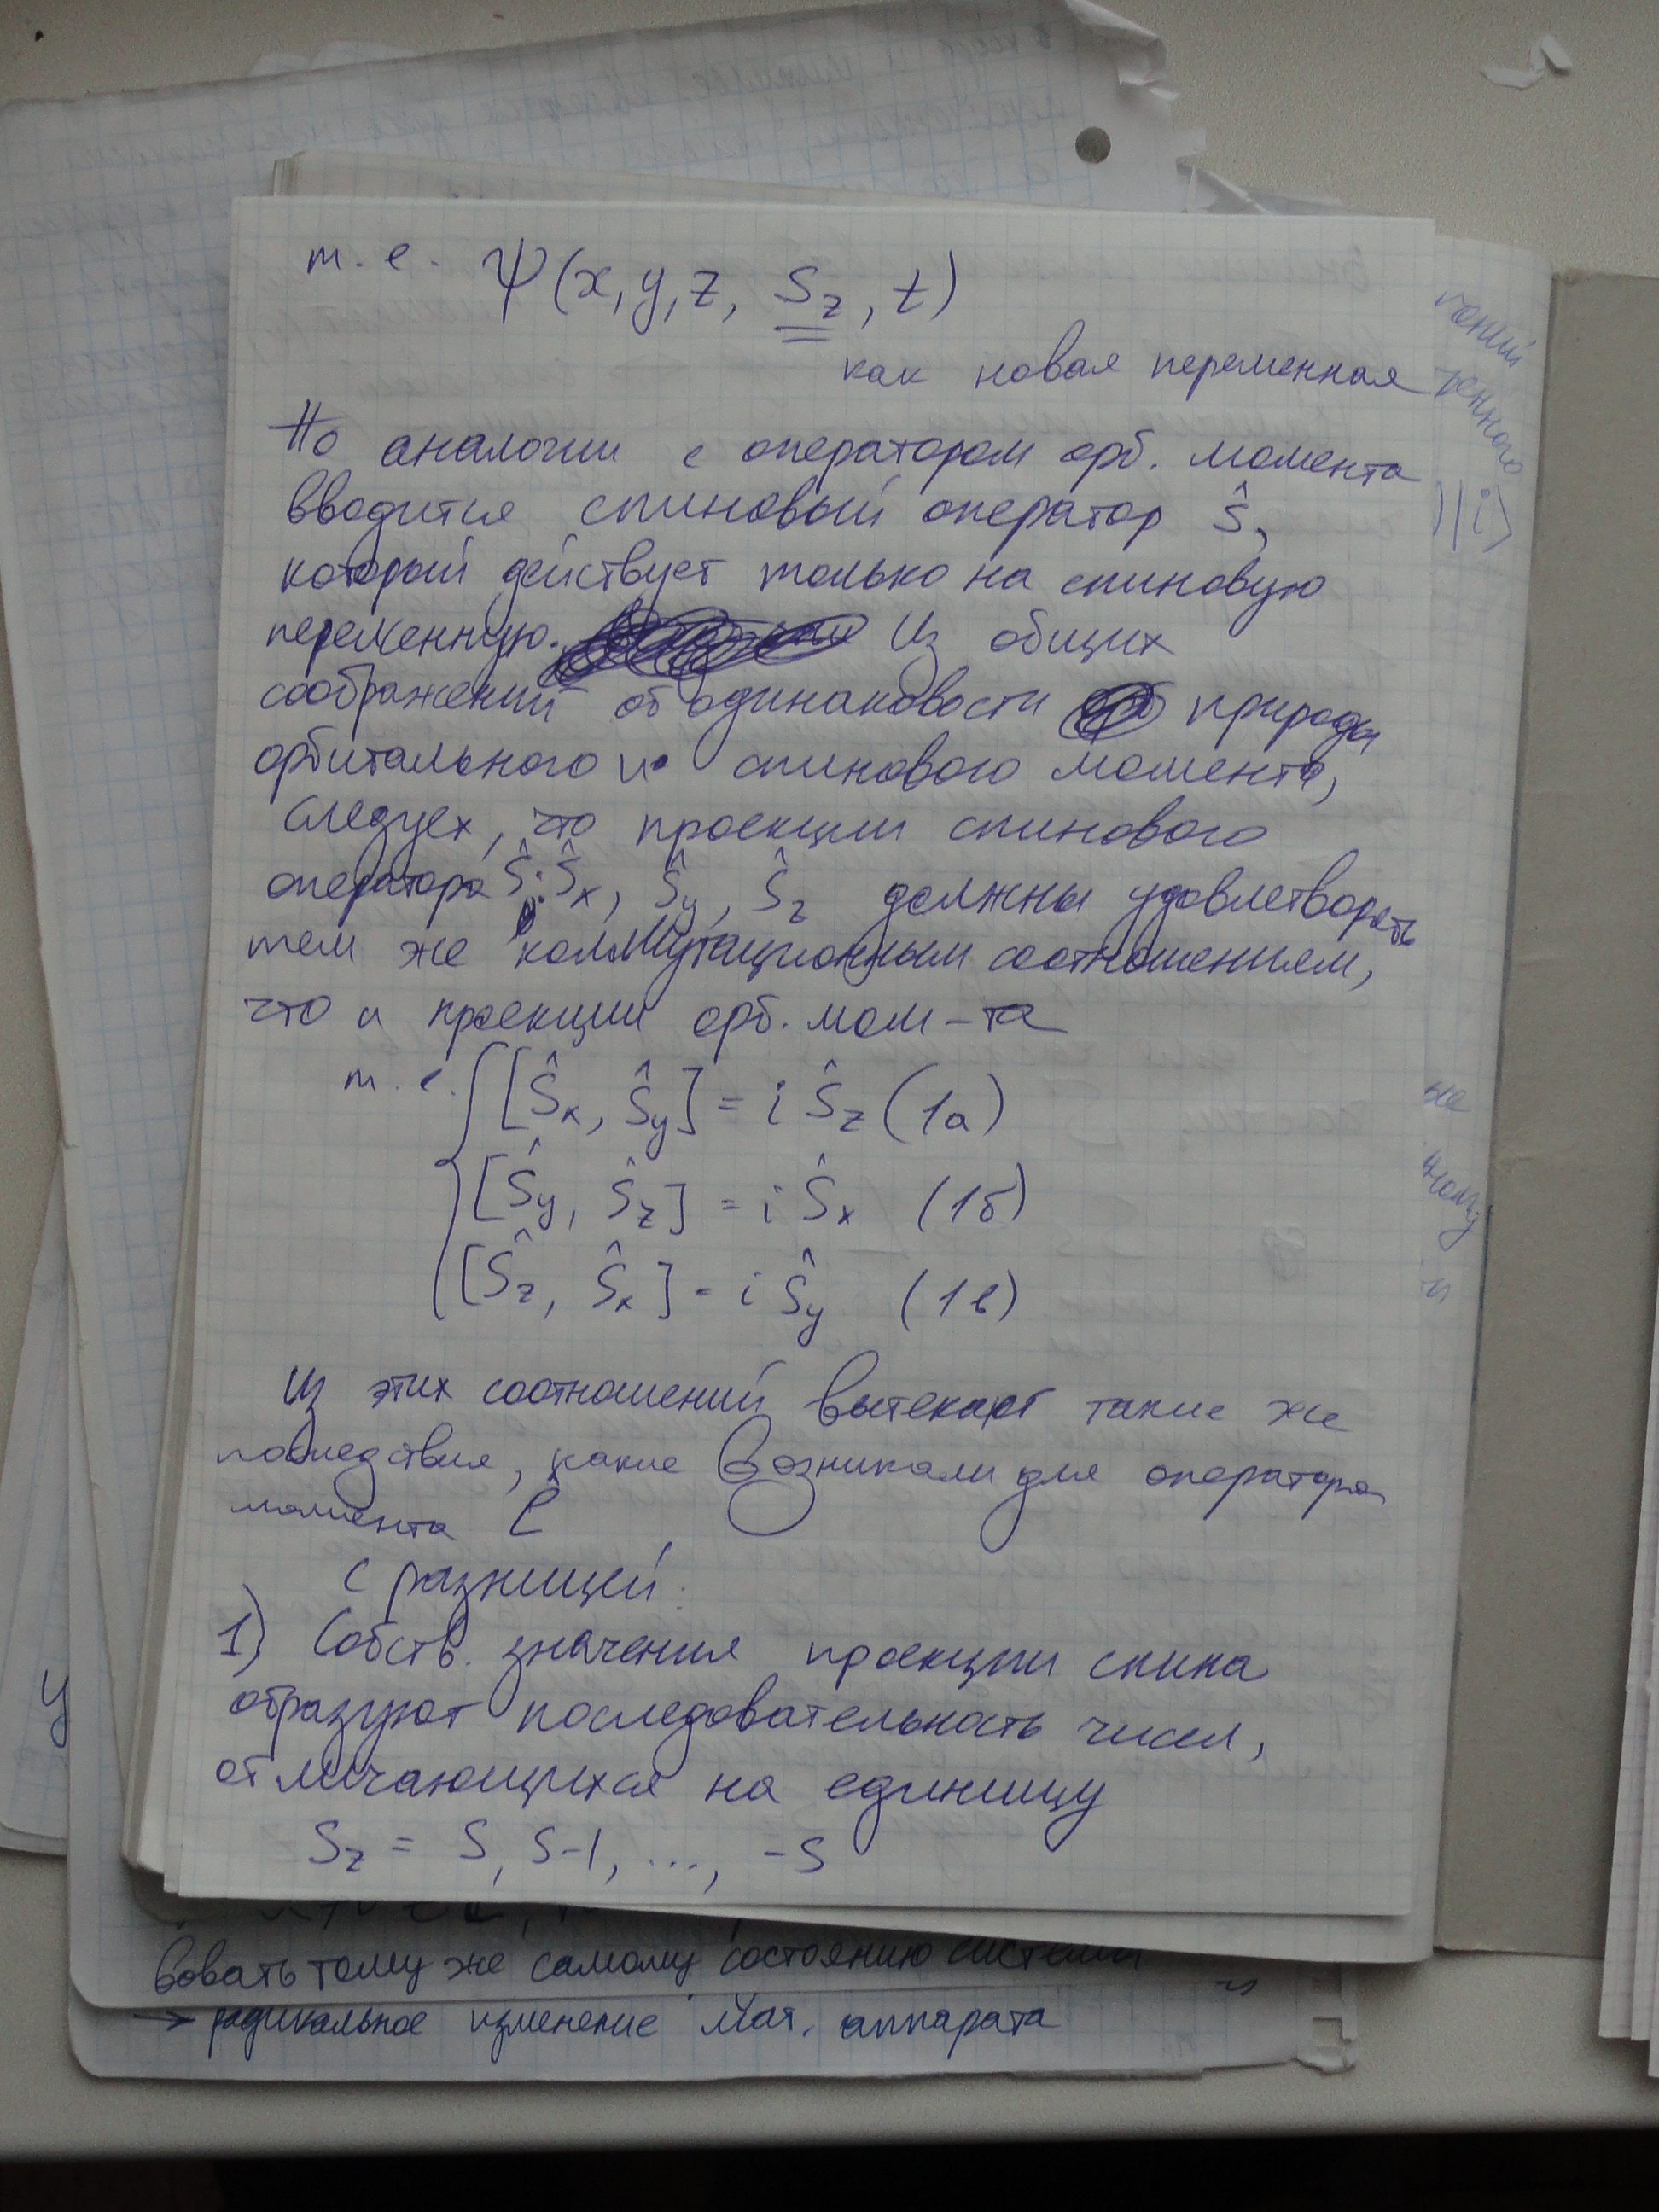 т. е. Ψ(x, y, z, S_z, t)
как новая переменная
По аналогии с оператором орб. момента
вводится спиновый оператор ŝ,
который действует только на спиновую
переменную. Из общих
соображений об одинаковости природы
орбитального и спинового момента,
следует, что проекции спинового
оператора Ŝ: Ŝ_x, Ŝ_y, Ŝ_z должны удовлетворять
тем же коммутационным соотношениям,
что и проекции орб. мом-та
т. е. [Ŝ_x, Ŝ_y] = i Ŝ_z (1а)
[Ŝ_y, Ŝ_z] = i Ŝ_x (1б)
[Ŝ_z, Ŝ_x] = i Ŝ_y (1в)
Из этих соотношений вытекают такие же
последствия, какие возникали для оператора
момента
с разницей:
1) Собств. значения проекции спина
образуют последовательность чисел,
отличающихся на единицу
S_z = S, S-1, ..., -S
вовать тому же самому состоянию системы
→ радикальное изменение мат. аппарата
чений
ренного
)|i⟩
ие
ному
у